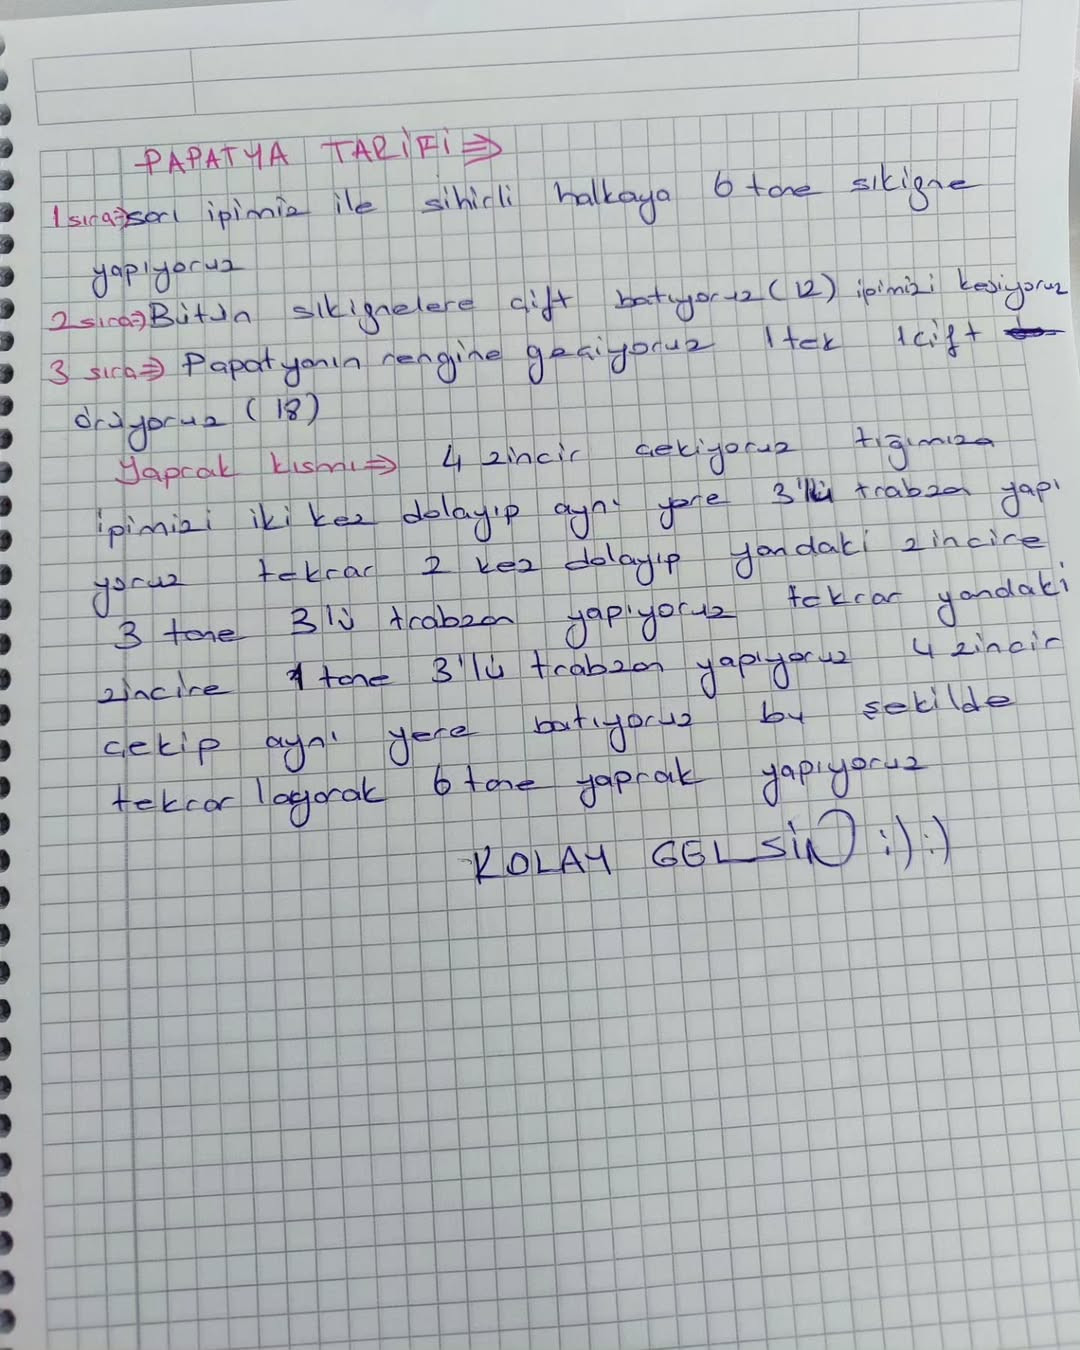 PAPATYA TARİFİ ⇒
1 sıra⇒ sarı ipimiz ile sihirli halkaya 6 tane sıkigne
yapıyoruz
2 sıra⇒ Bütün sıkignelere çift batıyoruz (12) ipimizi kesiyoruz
3 sıra⇒ Papatyanın rengine geçiyoruz 1 tek 1 çift
örüyoruz (18)
Yaprak kısmı⇒ 4 zincir çekiyoruz tığımıza
ipimizi iki kez dolayıp aynı yere 3'lü trabzan yapı
yoruz tekrar 2 kez dolayıp yandaki zincire
3 tane 3lü trabzan yapıyoruz tekrar yandaki
zincire 1 tane 3'lü trabzan yapıyoruz 4 zincir
çekip aynı yere batıyoruz bu şekilde
tekrarlayarak 6 tane yaprak yapıyoruz
KOLAY GELSİN :) :)